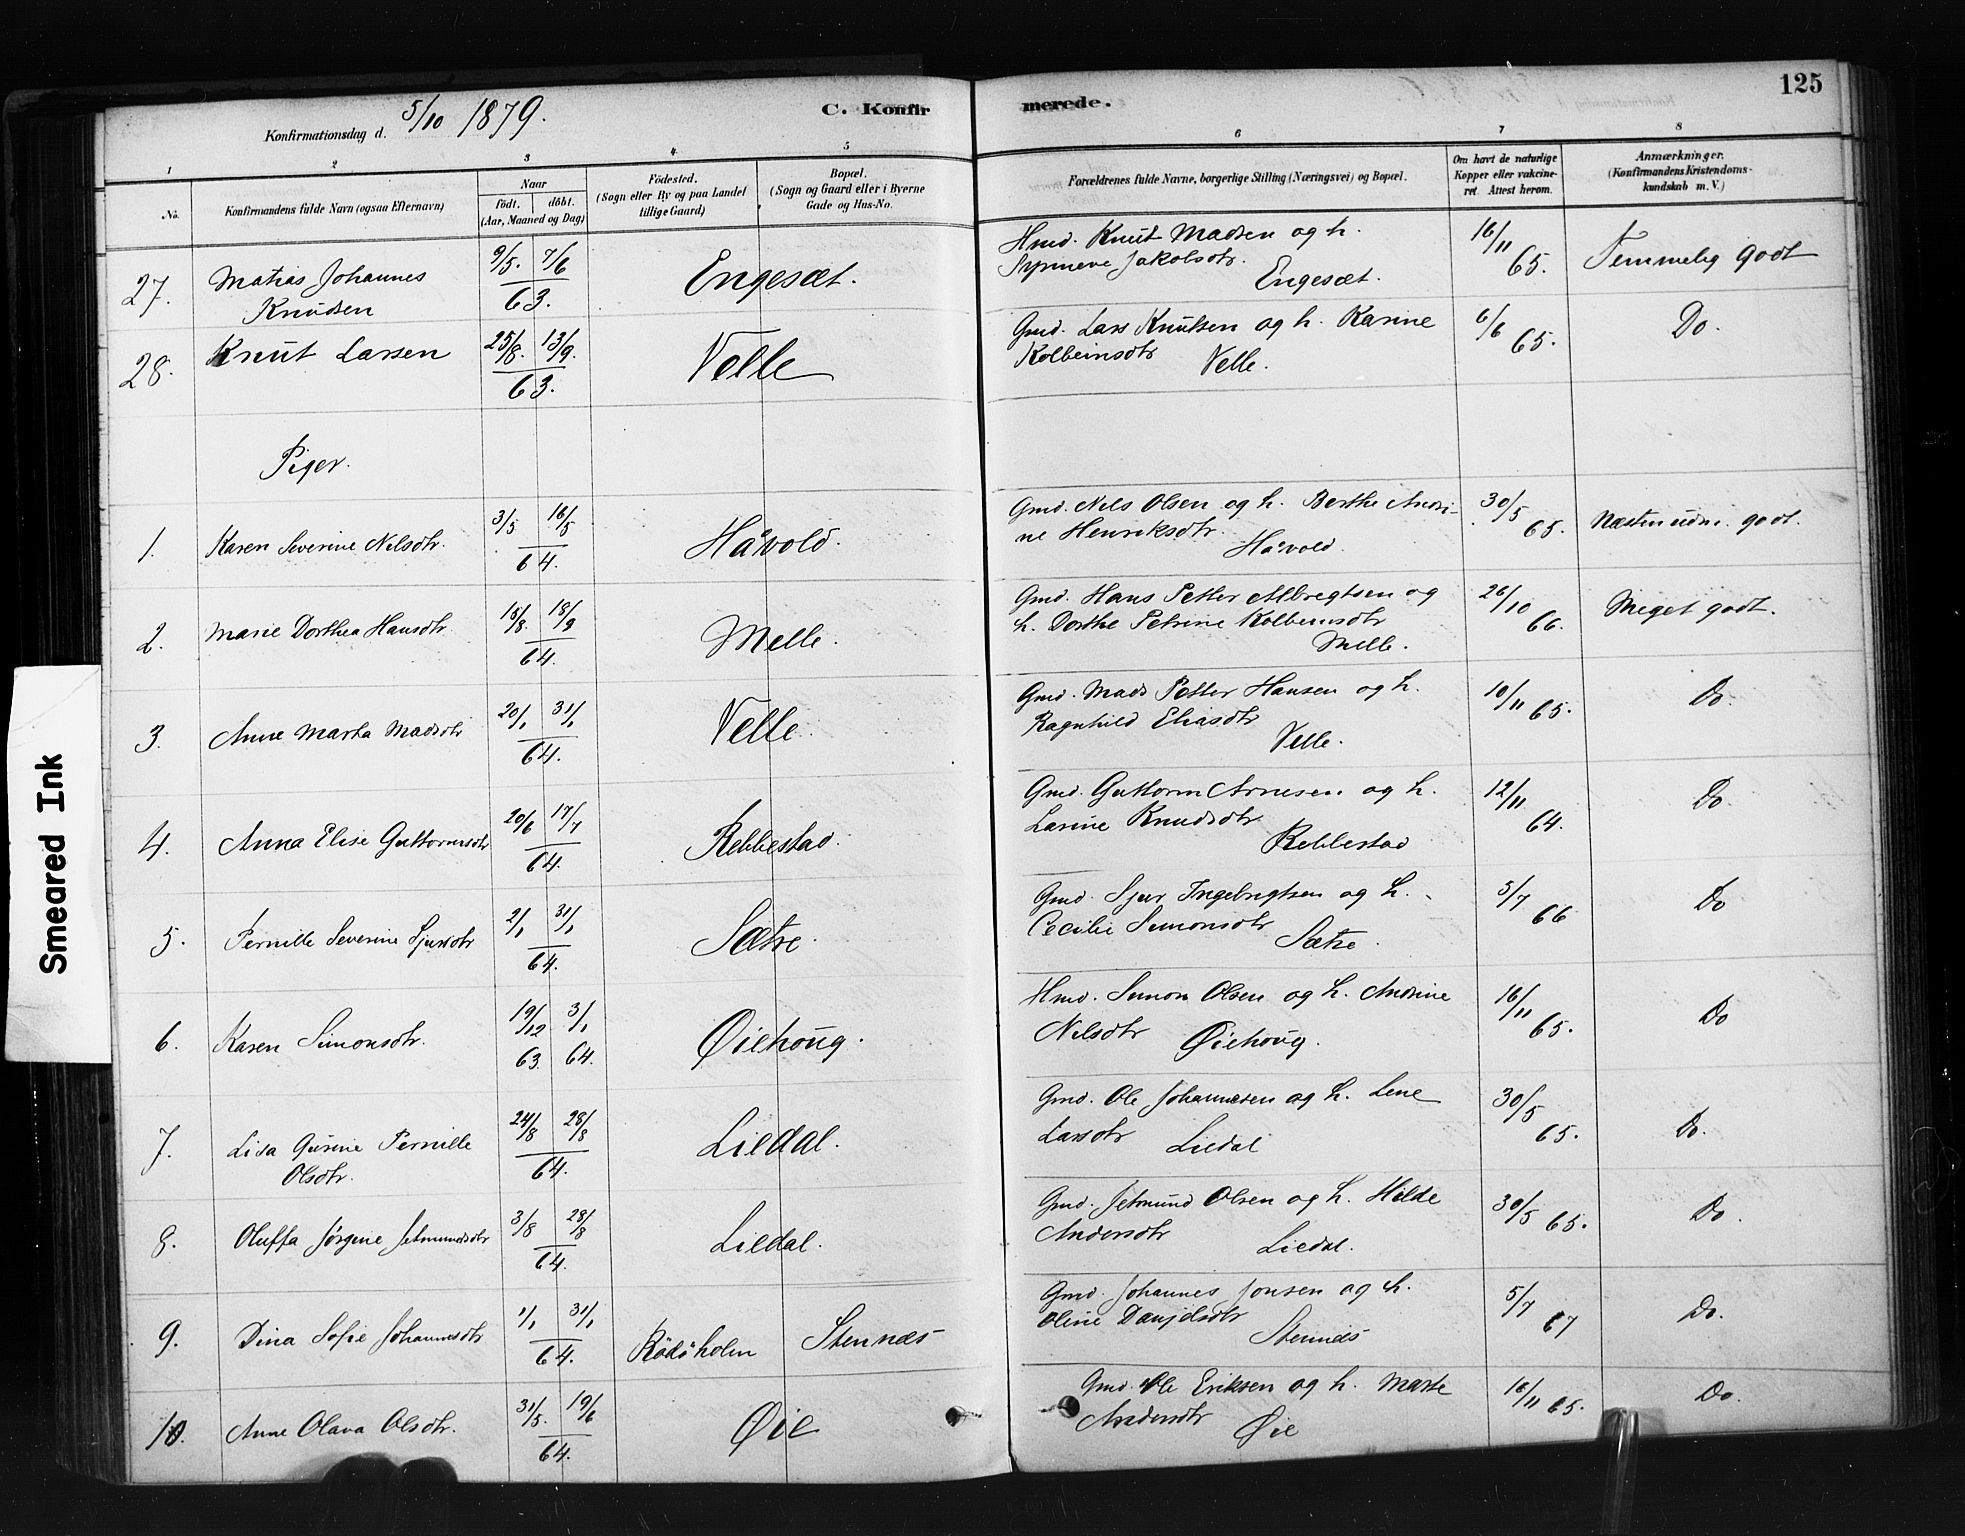 125
Konfirmationsdag d. 5/10 1879.
C. Konfirmerede.
1 2 3 4 5 6 7 8
No.
Konfirmandens fulde Navn (ogsaa Efternavn)
Naar
födt. döbt.
(Aar, Maaned og Dag)
Födested.
(Sogn eller By og paa Landet
tillige Gaard)
Bopæl.
(Sogn og Gaard eller i Byerne
Gade og Hus-No.
Forældrenes fulde Navne, borgerlige Stilling (Næringsvei) og Bopæl.
Om havt de naturlige
Kopper eller vakcine-
ret. Attest herom.
Anmærkninger.
(Konfirmandens Kristendoms-
kundskab m. V.)
27. Matias Johannes
Knudsen
9/5. 7/6
63.
Engesæt.
Hmd. Knut Madsen og h.
Synneve Jakobsdtr.
Engesæt.
16/11 65.
Temmelig godt
28. Knut Larsen
25/8. 13/9.
63.
Velle
Gmd. Lars Knutsen og h. Karine
Kolbeinsdtr Velle.
6/6 65.
Do.
Piger.
1. Karen Severine Nilsdtr.
3/5 16/5
64.
Håvold.
Gmd. Nels Olsen og h. Berthe Andri-
ne Henriksdtr.
Håvold.
30/5 65.
Næsten udm. godt.
2. Marie Dorthea Hansdtr.
18/8. 18/9
64.
Melle.
Gmd. Hans Petter Albregtsen og
h. Dorthe Petrine Kolbeinsdtr
Melle.
26/10 66.
Meget godt.
3. Anne Marta Madsdtr
20/1 31/1
64.
Velle.
Gmd. Mads Petter Hansen og h.
Ragnhild Eliasdtr
Velle.
10/11 65.
Do.
4. Anna Elise Guttormsdtr
20/6 17/7
64.
Rebbestad.
Gmd. Guttorm Arnesen og h.
Larine Knudsdtr
Rebbestad
12/11 64.
Do.
5. Pernille Severine Sjursdtr
2/1 31/1
64.
Sætre.
Gmd. Sjur Ingebrigtsen og h.
Cecilie Simonsdtr
Sætre.
5/7 66
Do
6. Karen Simonsdtr.
19/12 3/1
63. 64.
Øiehoug.
Hmd. Simon Olsen og h. Andrine
Nilsdtr Øiehoug.
16/11 65.
Do
7. Lisa Gurine Pernille
Olsdtr.
24/8 28/8
64.
Liedal.
Gmd. Ole Johannesen og h. Lene
Larsdtr Liedal
30/5 65.
Do.
8. Oluffa Jørgine Jetmundsdtr
3/8 28/8
64.
Liedal.
Gmd. Jetmund Olsen og h. Hilde
Andersdtr
Liedal.
30/5 65.
Do.
9. Dina Sofie Johannesdtr
1/1 31/1
64.
Rödöholm Stennæs
Gmd. Johannes Jonsen og h.
Oline Danjelsdtr
Stennæs
5/7 67
Do.
10. Anne Olava Olsdtr.
31/5. 19/6
64.
Øie
Gmd. Ole Eriksen og h. Marte
Andersdtr
Øie
16/11 65.
Do.
Smeared Ink